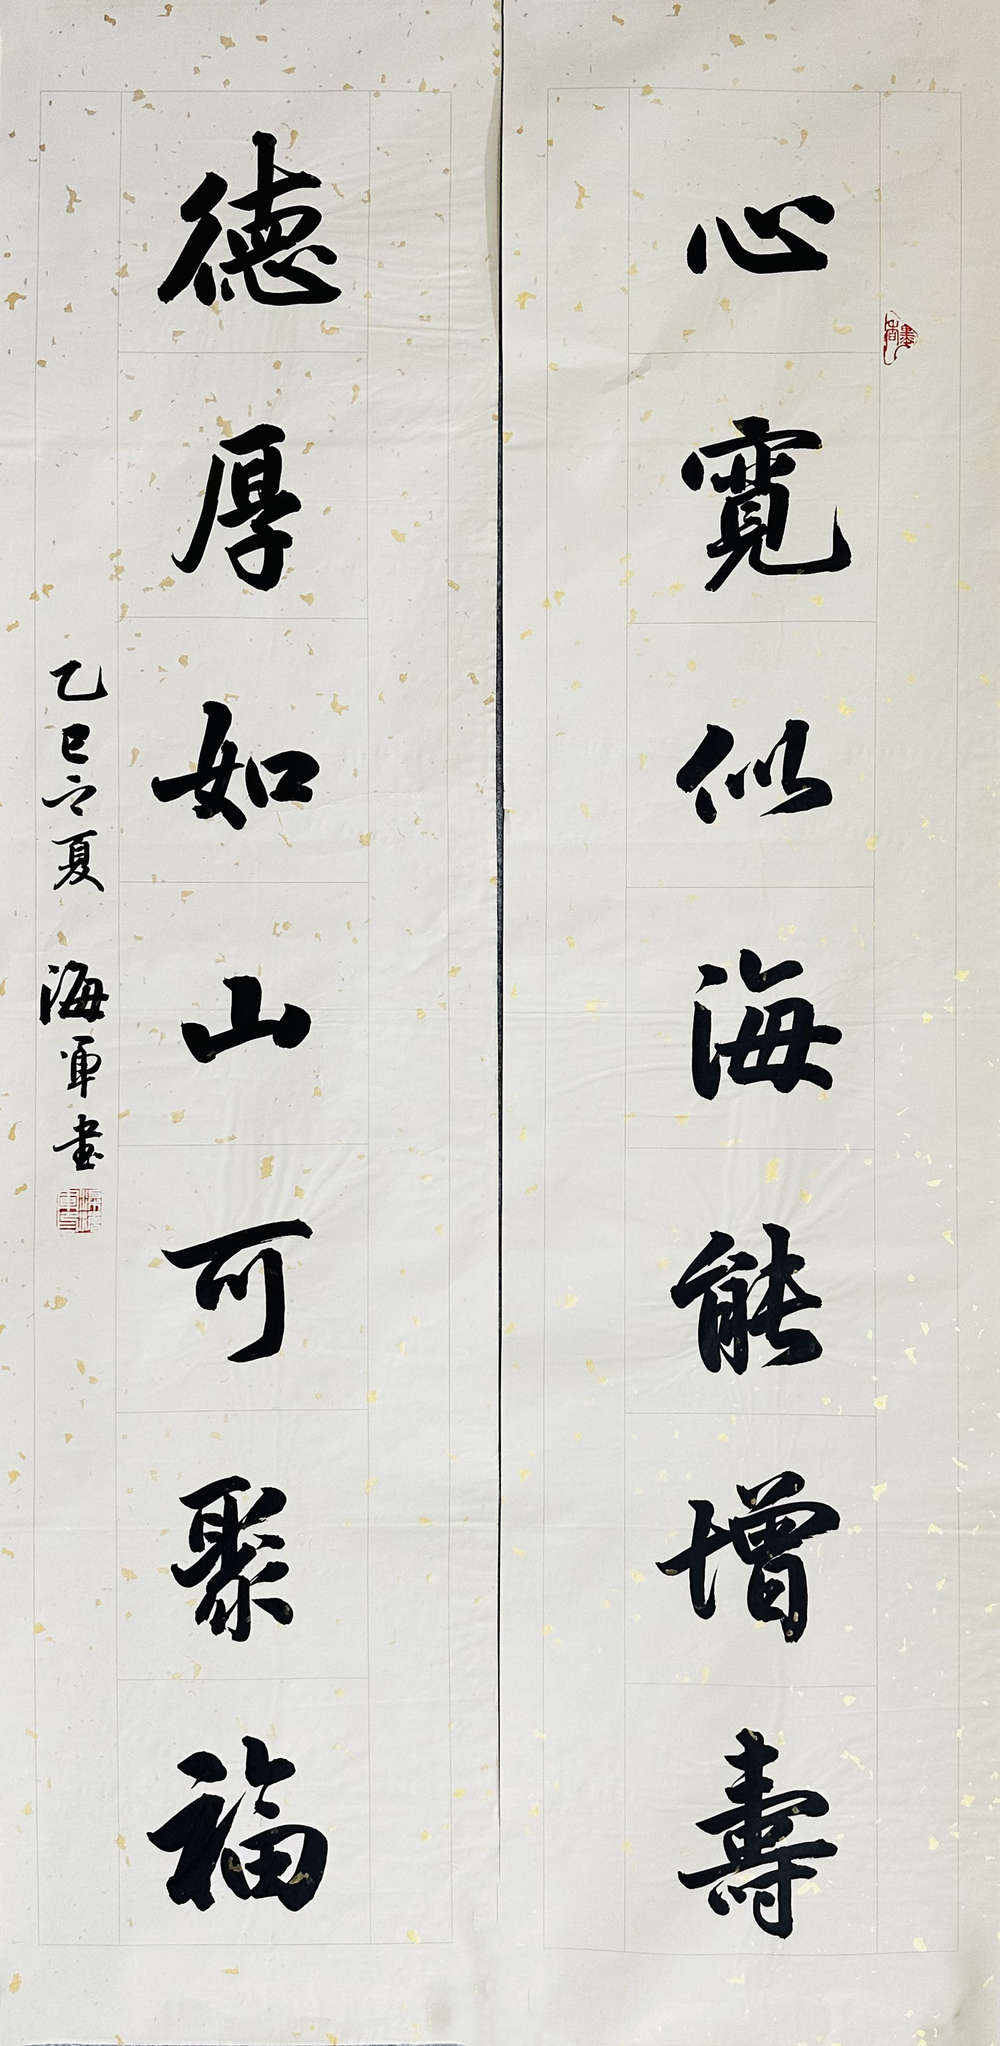 心寬似海能增壽
德厚如山可聚福
乙巳之夏 海軍書
墨香